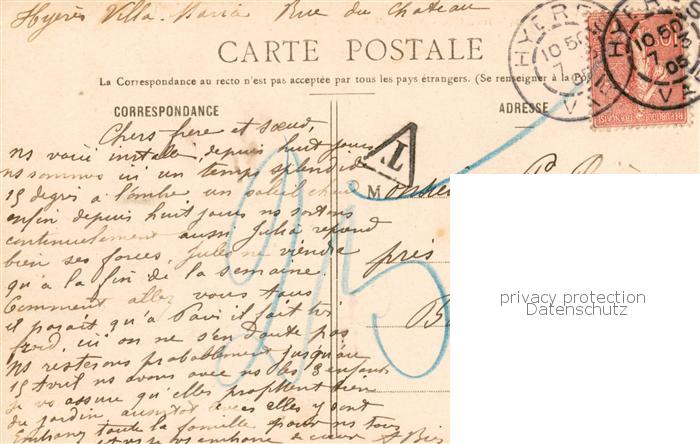 Hyères Villa Maria Rue du Chateau
CARTE POSTALE
La Correspondance au recto n'est pas acceptée par tous les pays étrangers. (Se renseigner à la Pos
CORRESPONDANCE
ADRESSE
HYERES
10 50
7
05
VAR
HYERES
10 50
7
05
VAR
10
REPUBLIQUE FRANÇAISE
T
Chers frère et Soeur,
ns voici installé depuis huit jours
ns sommes ici un temps splendide
15 degrs à l'ombre un soleil chaud
enfin depuis huit jours ns sortons
continuellement aussi Julia reprend
bien ses forces, Jules ne viendra
qu'à la fin de la semaine.
Comment allez vous tous
il parait qu'à Paris il fait
froid, ici on ne s'en doute pas
ns resterons probablement jusqu'au
15 Avril ns avons avec ns les 3 enfants
je vs assure qu'elles profitent bien
du jardin, aussitôt levées elles y sont
Embrassez toute la famille pour ns tous
et vs je vs embrasse de coeur
Monsieur
près
25
privacy protection
Datenschutz